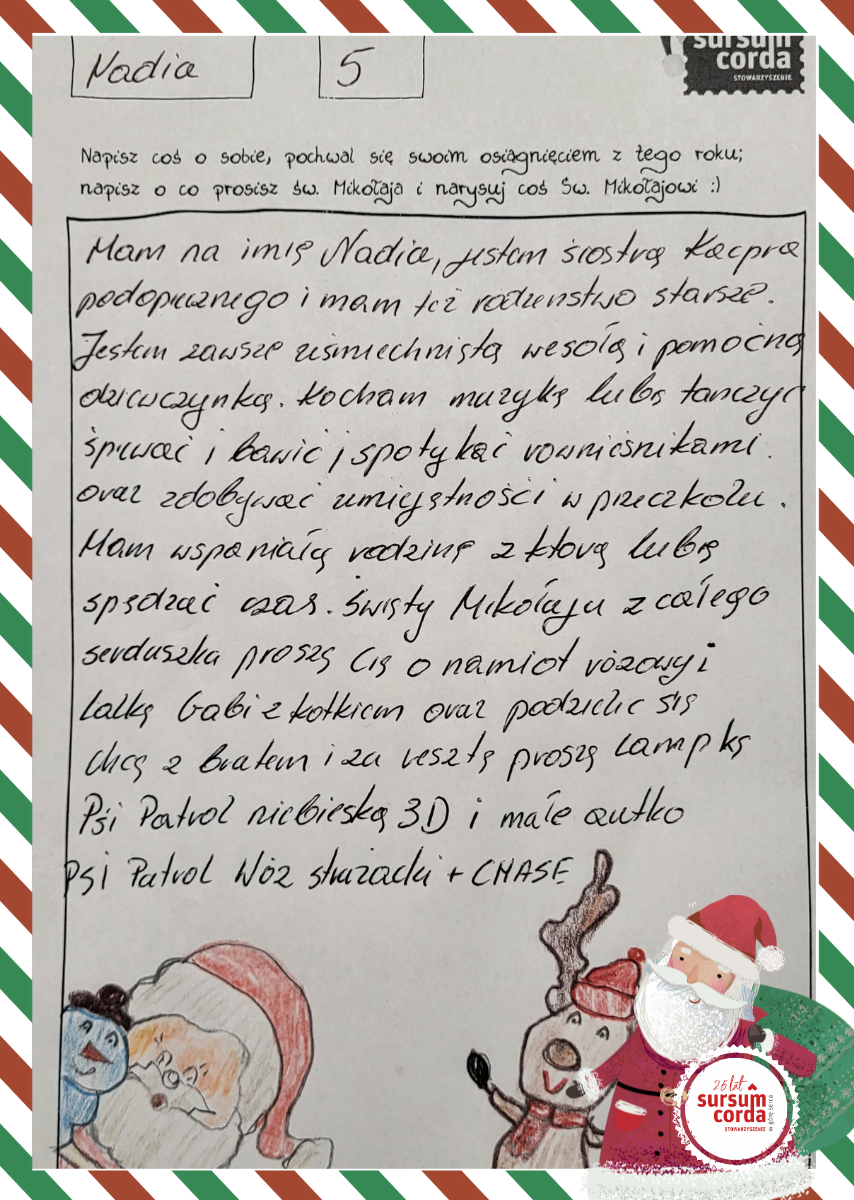 Nadia
5
sursum
corda
STOWARZYSZENIE
Napisz coś o sobie, pochwal się swoim osiągnięciem z tego roku;
napisz o co prosisz św. Mikołaja i narysuj coś Św. Mikołajowi :)
Mam na imię Nadia, jestem siostrą Kacpra
podopiecznego i mam też rodzenstwo starsze.
Jestem zawsze uśmiechniętą wesołą i pomocną
dziewczynką. Kocham muzykę lubię tanczyć
śpiewać i bawić i spotykać rownieśnikami.
oraz zdobywać umiejętności w przeczkolu.
Mam wspaniałą rodzinę z ktorą lubię
spędzać czas. Święty Mikołaju z całego
serduszka proszę Cię o namiot rózowy i
lalkę Gabi z kotkiem oraz podzielic się
chcę z bratem i za resztę proszę lampkę
Psi Patrol niebieską 3D i małe autko
PSI Patrol Wóz strażacki + CHASE
26 lat
sursum
corda
STOWARZYSZENIE
w górę serca